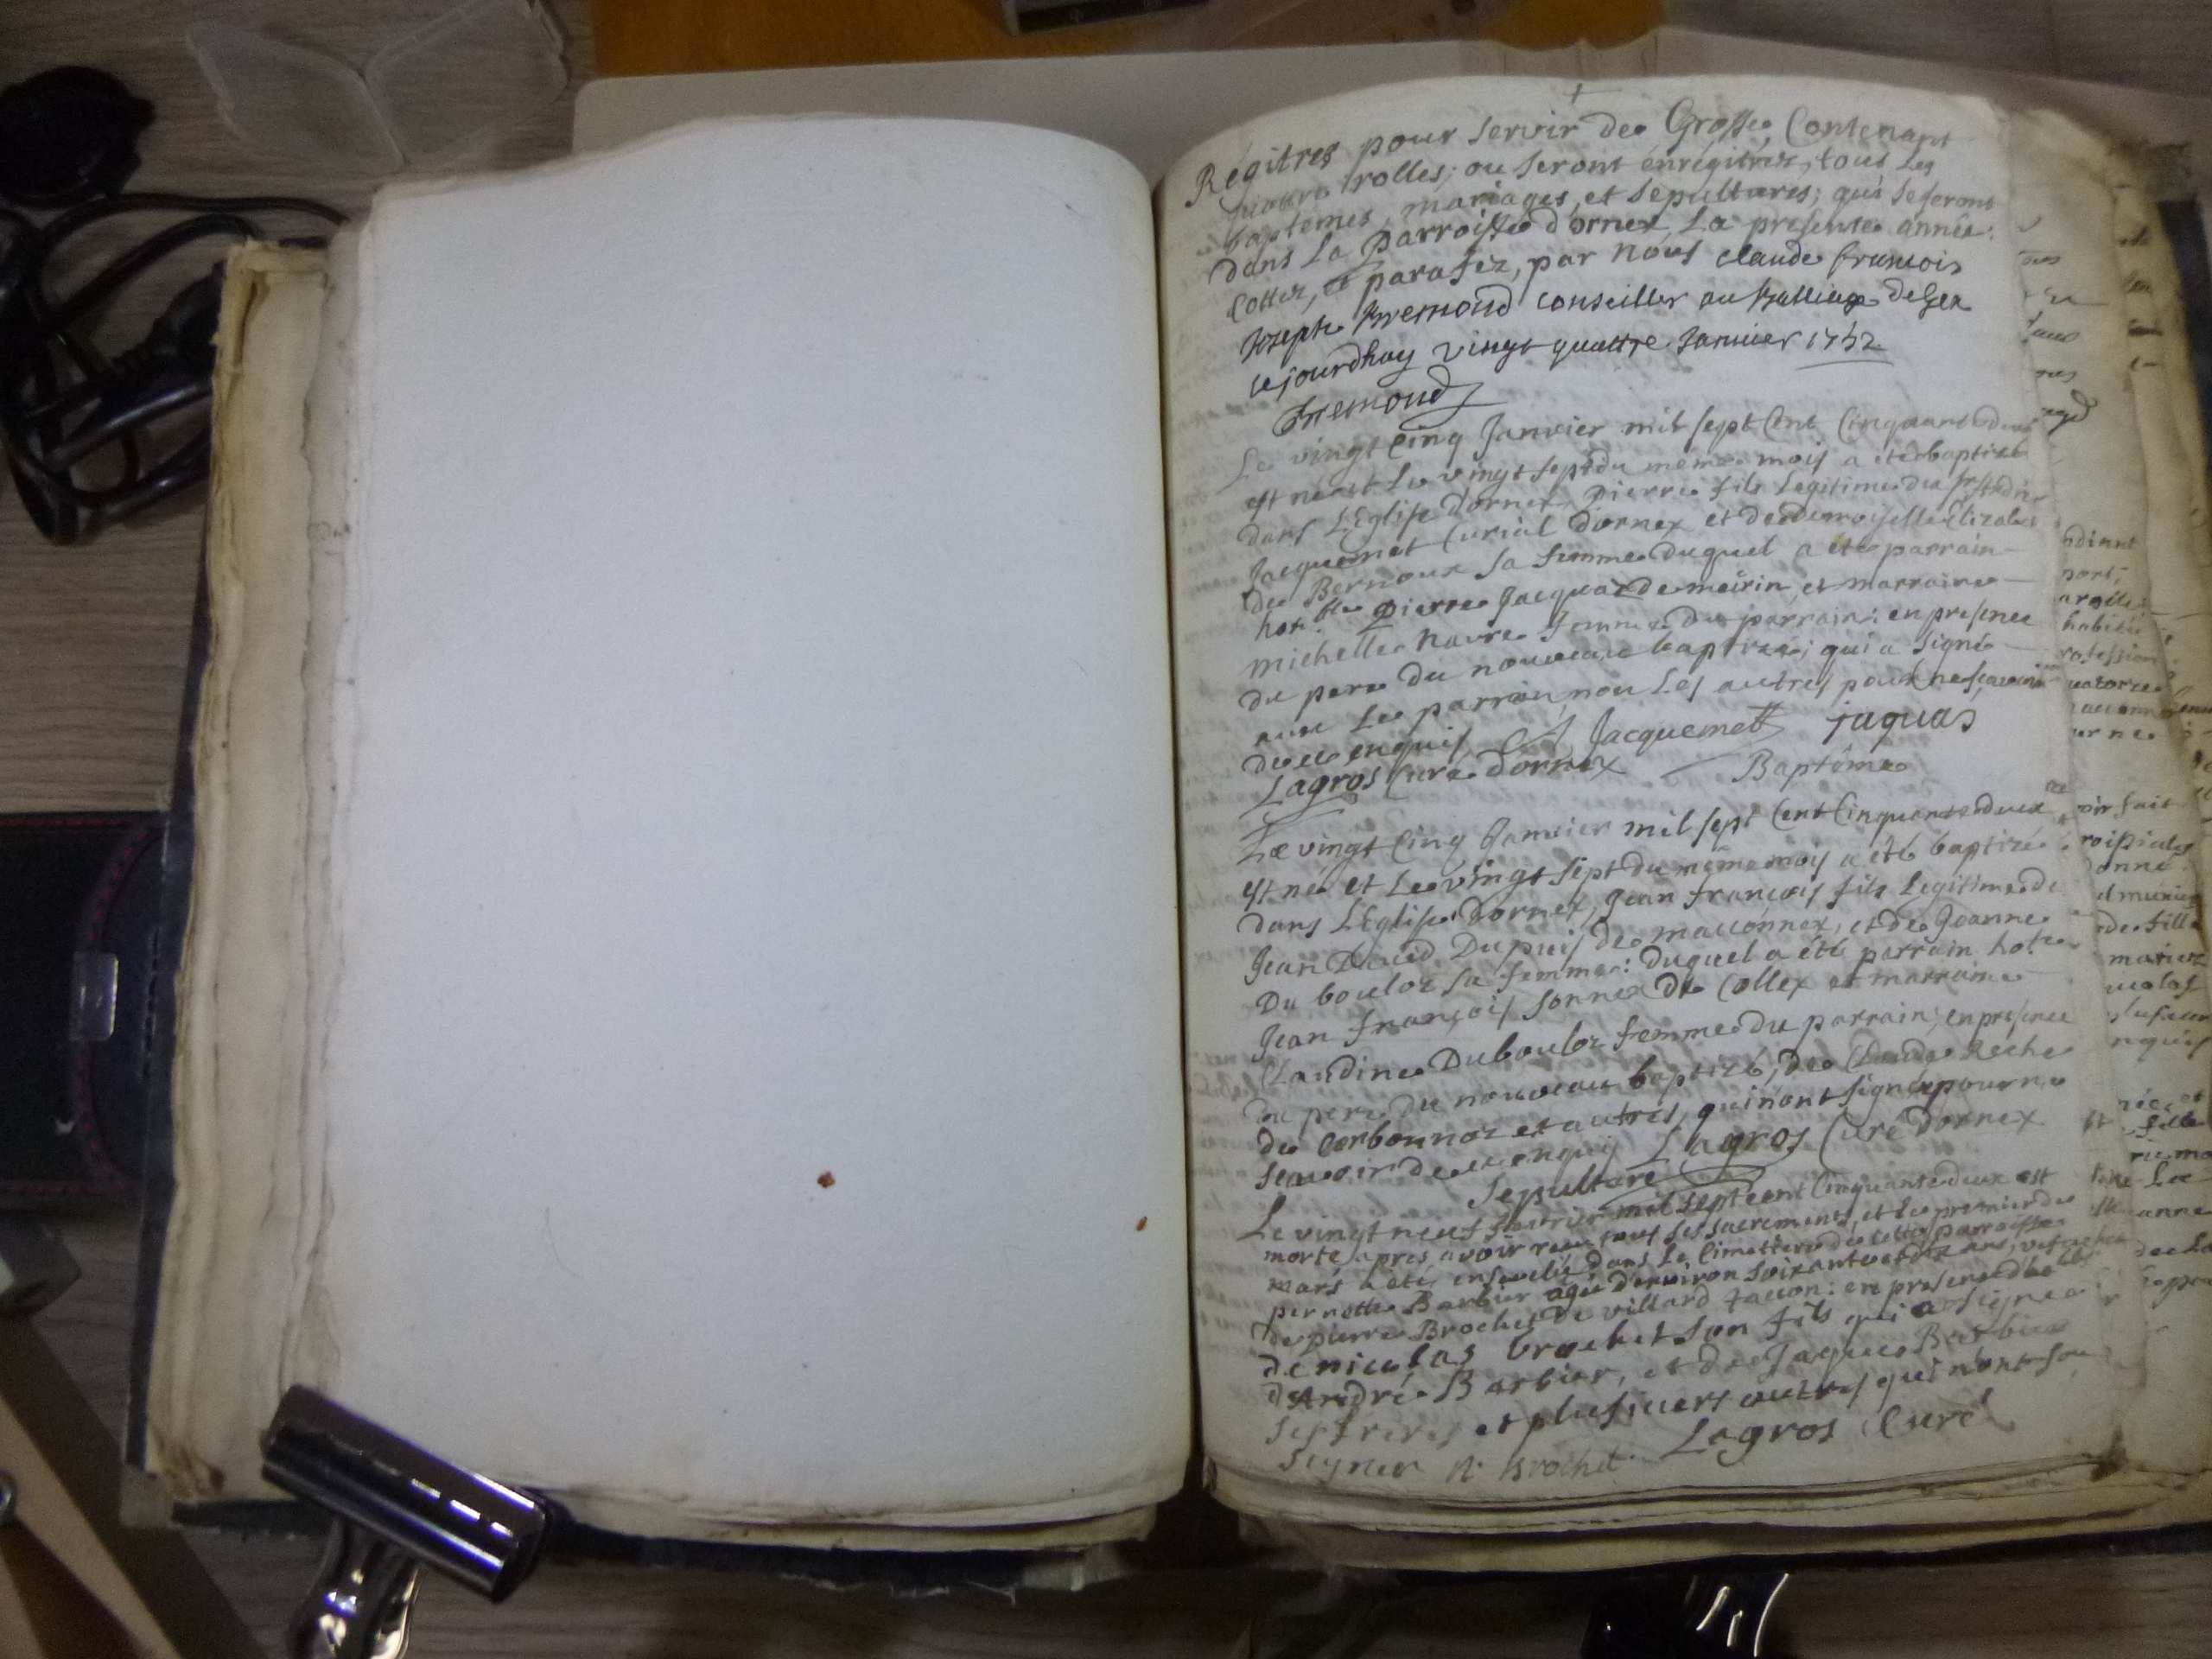 Régitres pour servir de Grosse, Contenant
rolles; ou seront énrégitréz, tous Les
baptemes, mariages, et sepultures; qui se feront
dans La parroisse d'ornex La presente année.
Cottez, et parafez, par Nous claude francois
Joseph fremond conseiller au Balliage de Gex
cejourdhuy vingt quattre Janvier 1752
fremond
Le vingt Cinq Janvier mil sept Cent Cinquante deux
est né et Le vingt sept du même mois a été baptizé
dans L'Eglise d'ornex Pierre fils Legitime de
Jacquemet Curial d'ornex et de demoiselle Elizabet
de Bernoux sa femme duquel a été parrain
hote Pierre Jacquaz de meirin, et marraine
michelle Navre femme du parrain: en presence
du pere du nouveau baptizé; qui a signé
avec Le parrain, non Les autres pour ne scavoir
de ce enquis Jacquemet jaquas
Lagros Curé d'ornex Baptême
Le vingt Cinq Janvier mil sept Cent Cinquante deux
est né et Le vingt sept du même mois a été baptizé
dans L'Eglise d'ornex, Jean francois fils Legitime de
Jean David Dupuis de maconnex, et de Jeanne
Du bouloz sa femme: duquel a été parrain hote
Jean françois sonnex de Collex et marraine
Claudine Dubouloz femme du parrain; en présence
du pere du nouveau baptizé, de Claude Réche
de Corbonnoz et autres, qui n'ont signé pour ne
scavoir de ce enquis Lagros Curé d'ornex
Sepulture
Le vingt neuf fevrier mil sept cent Cinquante deux est
morte, apres avoir reçu tous ses sacremens, et Le premier de
mars a été ensevelie dans Le Cimettiere de cette parroisse
pernette Barbier agée d'environ soixante et dix ans, veuve
de pierre Brochet de villard tacon: en presence d'
de nicolas brochet son fils qui a signé
d'André Barbier, et de Jaques Barbier
ses freres, et plusieurs autres qui n'ont sçu
signer N. brochet. Lagros Curé